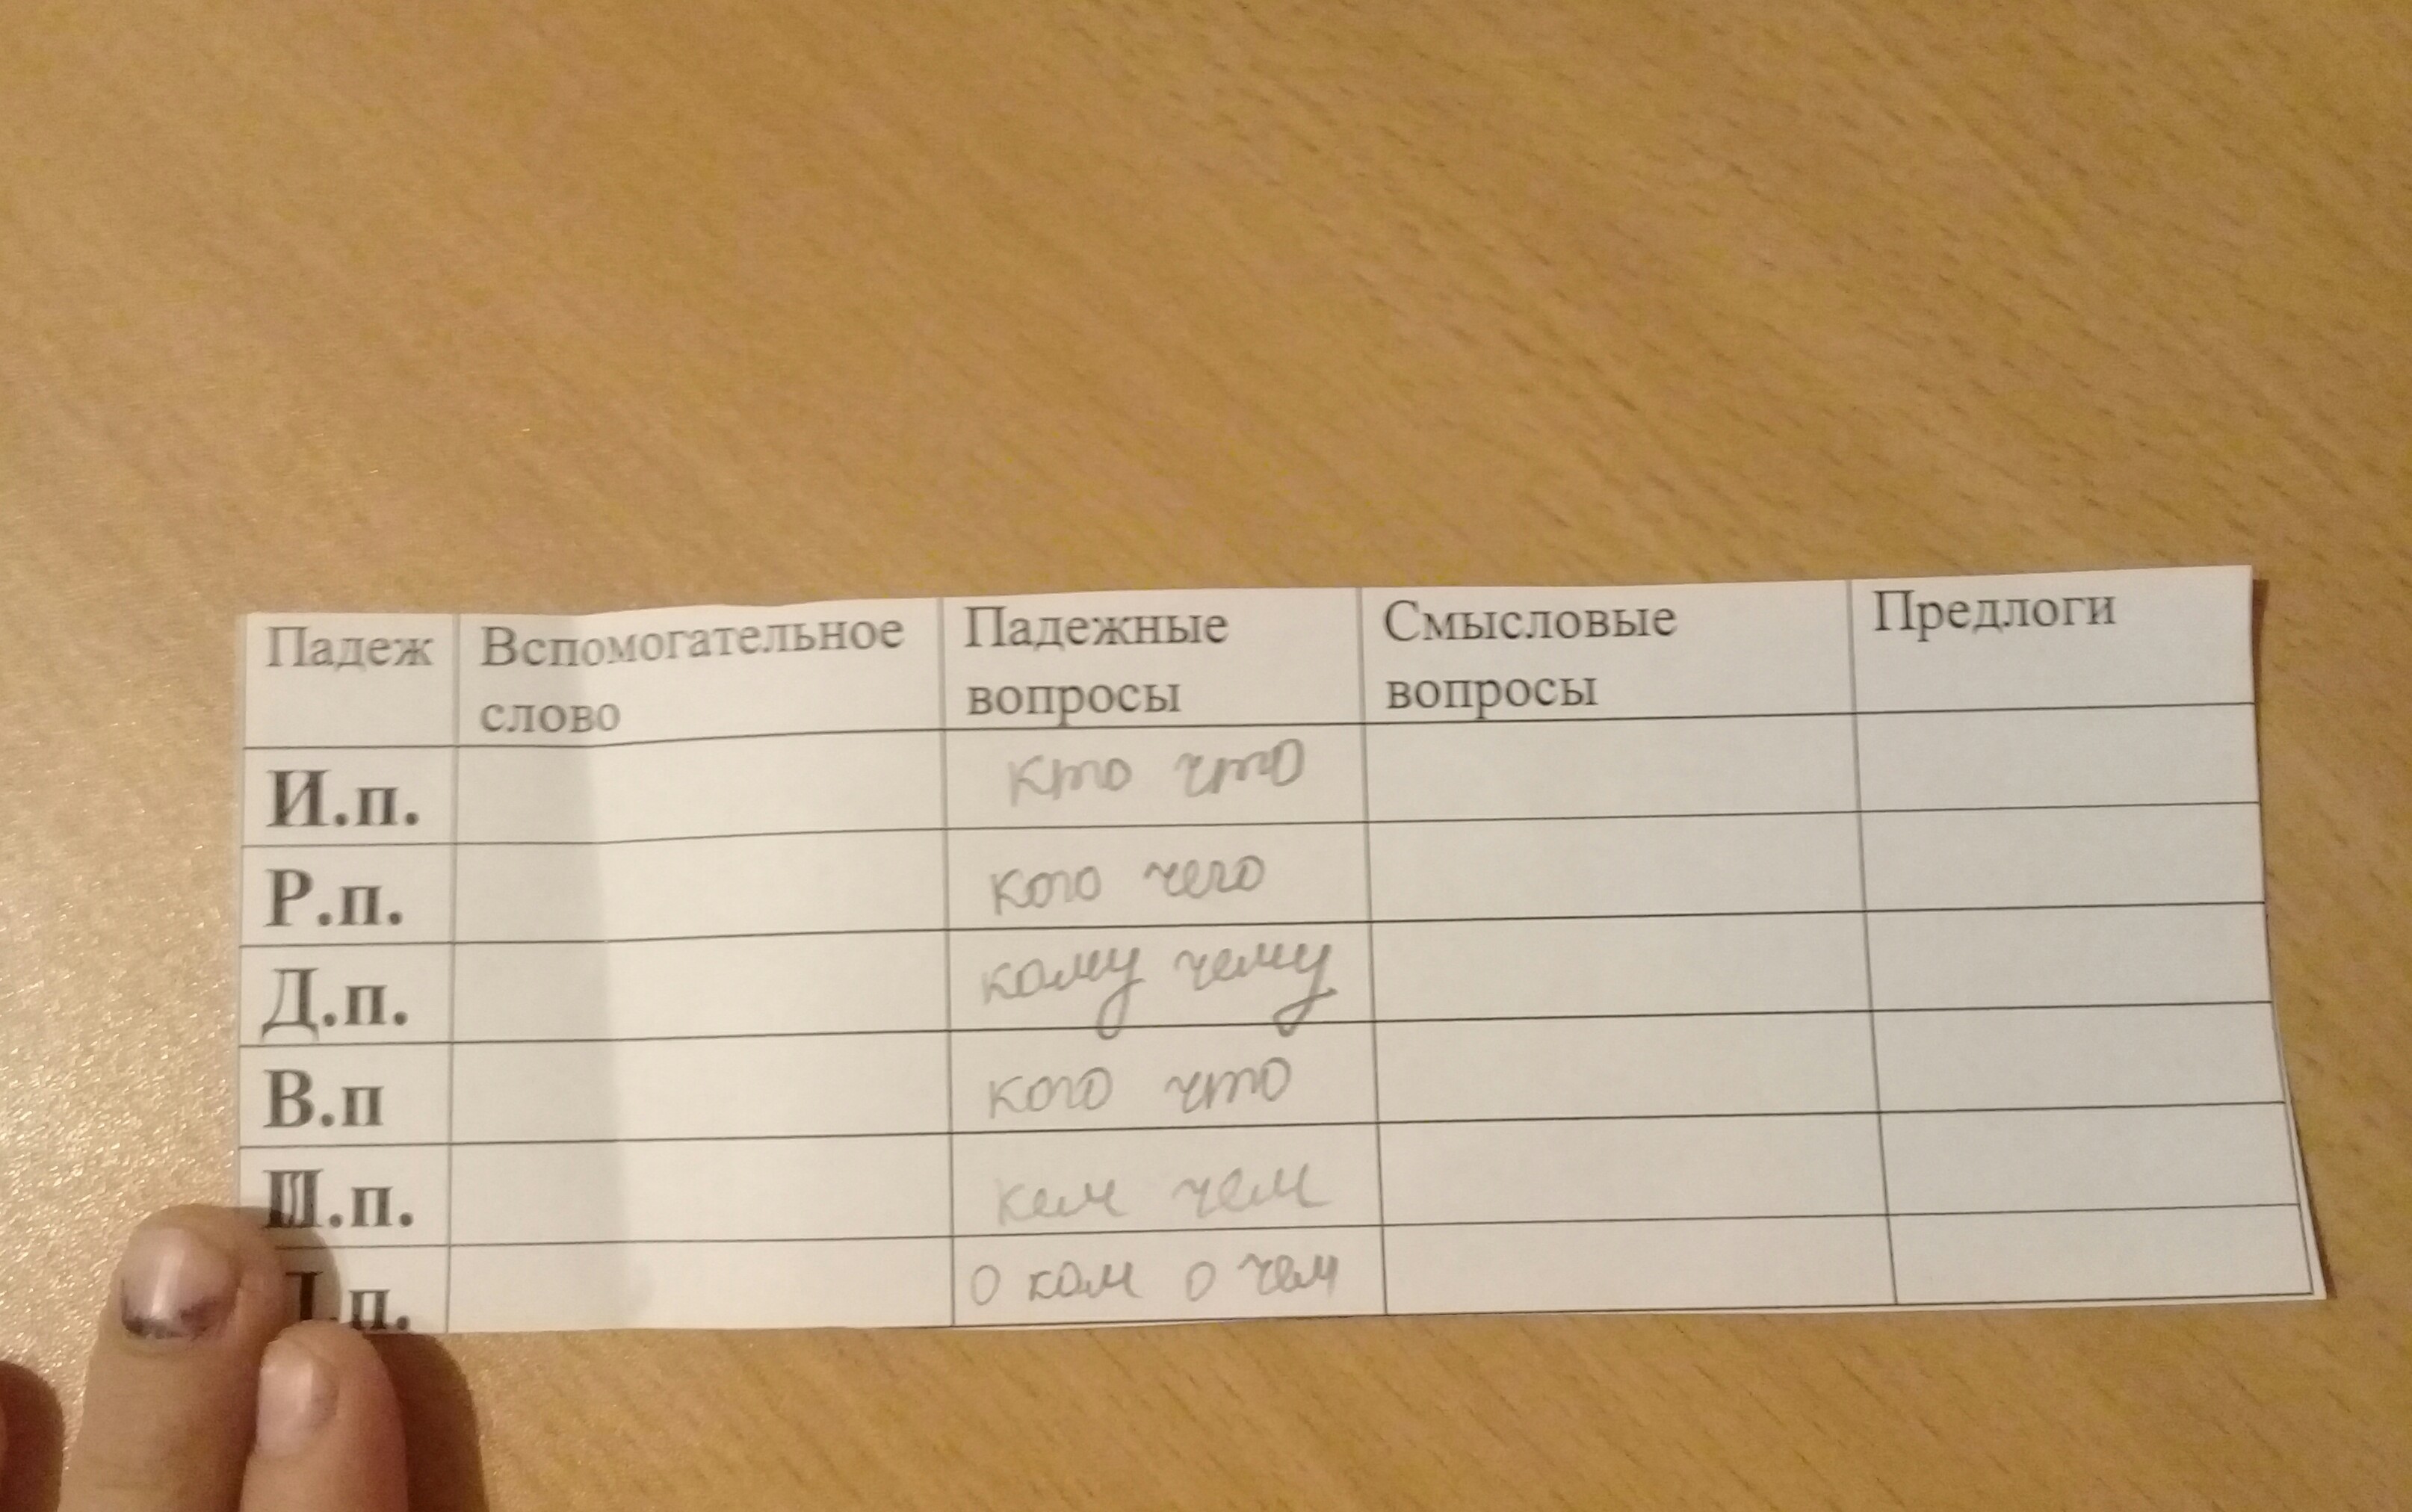 Падеж Вспомогательное слово Падежные вопросы Смысловые вопросы Предлоги
И.п. кто что
Р.п. кого чего
Д.п. кому чему
В.п кого что
п. кем чем
п. о ком о чем